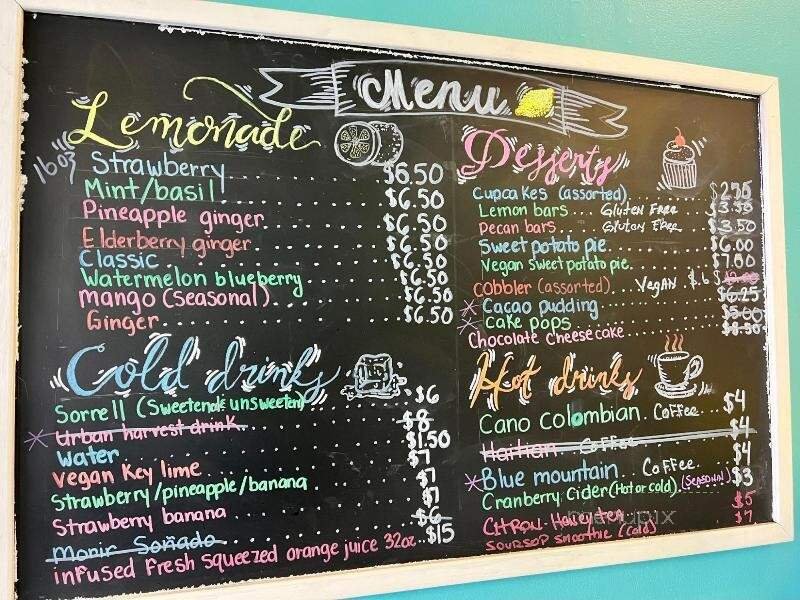 Menu
Lemonade
16oz
Strawberry $6.50
Mint/basil $6.50
Pineapple ginger $6.50
Elderberry ginger $6.50
Classic $6.50
Watermelon blueberry $6.50
Mango (seasonal) $6.50
Ginger $6.50
Cold drinks
Sorrell (Sweetend & unsweeten) $6
Urban harvest drink $8
Water $1.50
Vegan Key lime $7
Strawberry/pineapple/banana $7
Strawberry banana $7
Morir Soñado $6
infused Fresh squeezed orange juice 32oz $15
Desserts
Cupcakes (assorted)
Lemon bars Gluten Free $3.50
Pecan bars Gluten Free $3.50
Sweet potato pie $6.00
Vegan sweet potato pie $7.00
Cobbler (assorted) Vegan
Cacao pudding $6.25
Cake pops $5.00
Chocolate cheesecake $8.50
Hot drinks
Cano Colombian Coffee $4
Haitian Coffee $4
Blue mountain Coffee $4
Cranberry Cider (Hot or cold) (Seasonal) $3
CITRON-Honey tea $5
SOURSOP smoothie (cold) $7